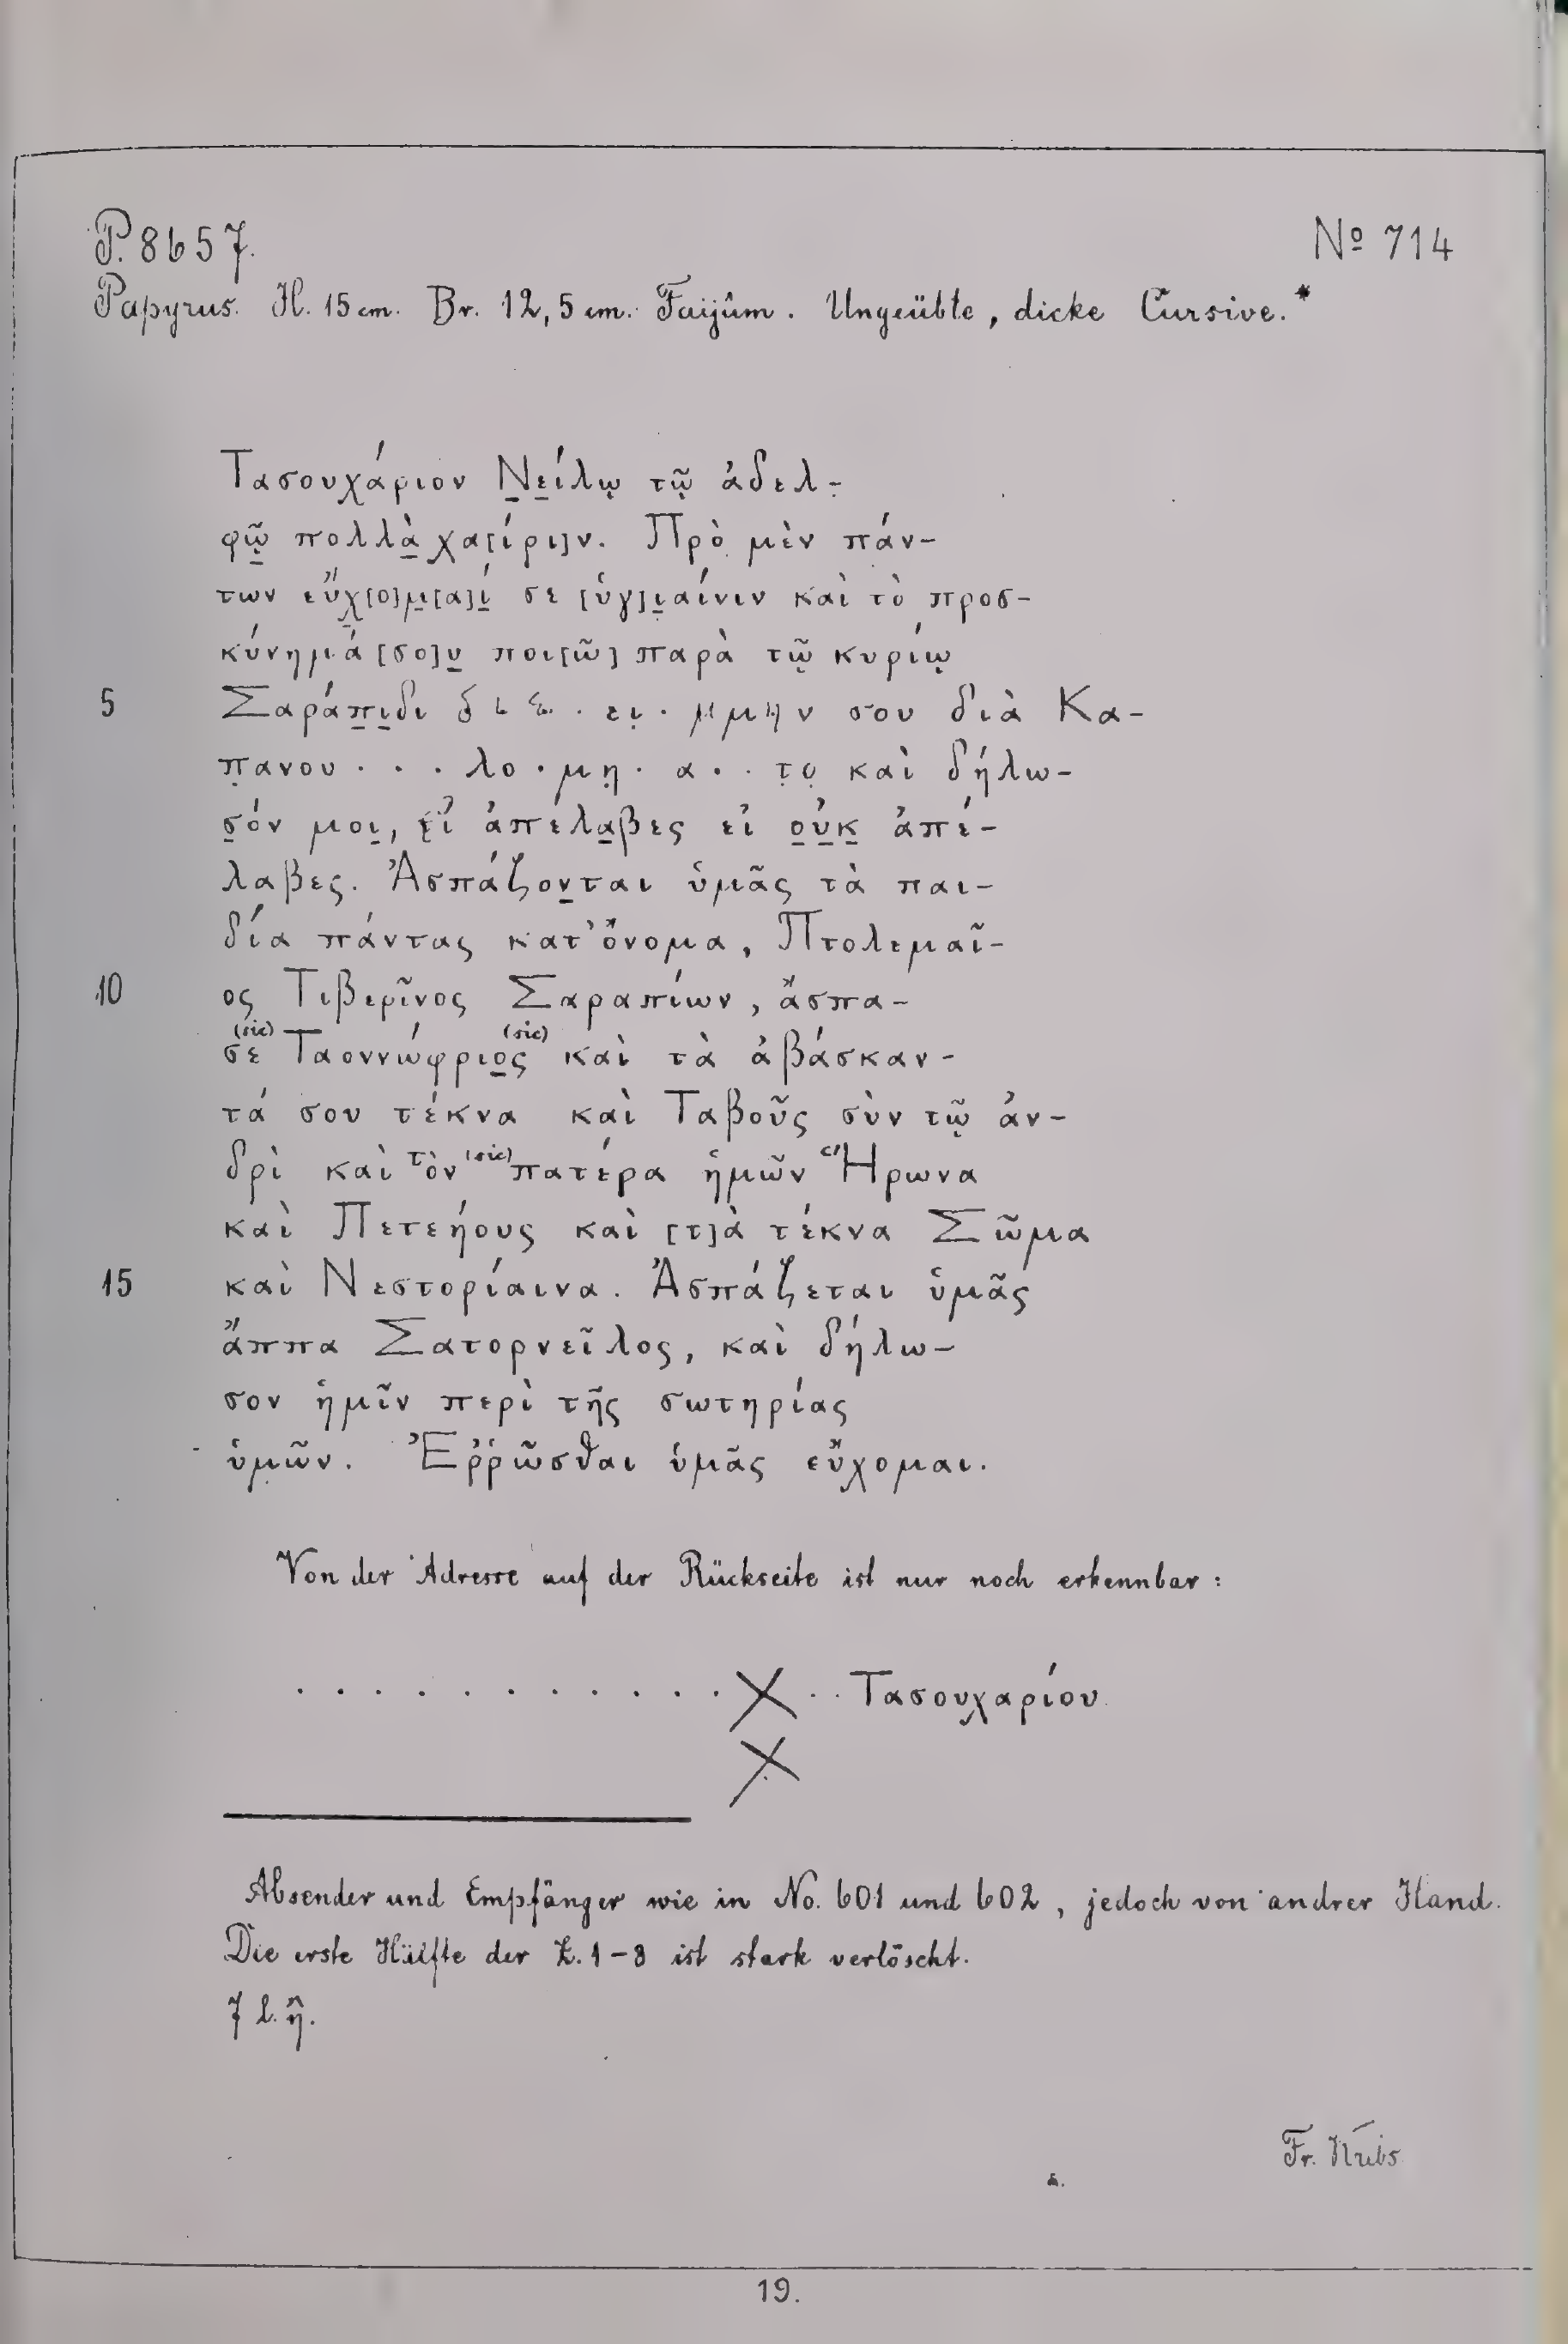 P. 8657.
No 714
Papyrus. H. 15 cm. Br. 12,5 cm. Faijûm. Ungeübte, dicke Cursive.*
Τασουχάριον Ν̣ε̣ίλῳ τῷ ἀδελ-
φῷ̣ πολλὰ̣ χα[ίρι]ν. Πρὸ μὲν πάν-
των εὔχ̣[ο]μ̣[α]ί̣ σε [ὑγ]ι̣αίνιν καὶ τὸ προσ-
κύνημά [σο]υ̣ ποι[ῶ] παρὰ τῷ κυρίῳ
5 Σαράπ̣ι̣δι . ει̣ . μμην σου διὰ Κα-
π̣ανου . . . λο . μη̣ . α . . τ̣ο̣ καὶ δήλω-
σ̣όν μοι̣, εἴ ἀπέλα̣βες εἰ ο̣ὐ̣κ̣ ἀπέ-
λαβες. Ἀσπάζον̣ται ὑμᾶς τὰ παι-
δία πάντας κατ' ὄνομα, Πτολεμαῖ-
10 ος Τιβερῖνος Σαραπίων, ἄσπα-
(sic) (sic)
σε Ταοννώφριο̣ς καὶ τὰ ἀβάσκαν-
τά σου τέκνα καὶ Ταβοῦς σὺν τῷ ἀν-
δρὶ καὶ τὸν (sic) πατέρα ἡμῶν Ἥρωνα
καὶ Πετεήους καὶ [τ]ὰ τέκνα Σῶμα
15 καὶ Νεστορίαινα. Ἀσπάζεται ὑμᾶς
ἄππα Σατορνεῖλος, καὶ δήλω-
σον ἡμῖν περὶ τῆς σωτηρίας
ὑμῶν. Ἐῤῥῶσθαι ὑμᾶς εὔχομαι.
Von der Adresse auf der Rückseite ist nur noch erkennbar:
. . . . . . . . . . . X . . Τασουχαρίου
X
Absender und Empfänger wie in No. 601 und 602, jedoch von andrer Hand.
Die erste Hälfte der Z. 1-8 ist stark verlöscht.
7 l. ἢ.
Fr. Krebs
19.